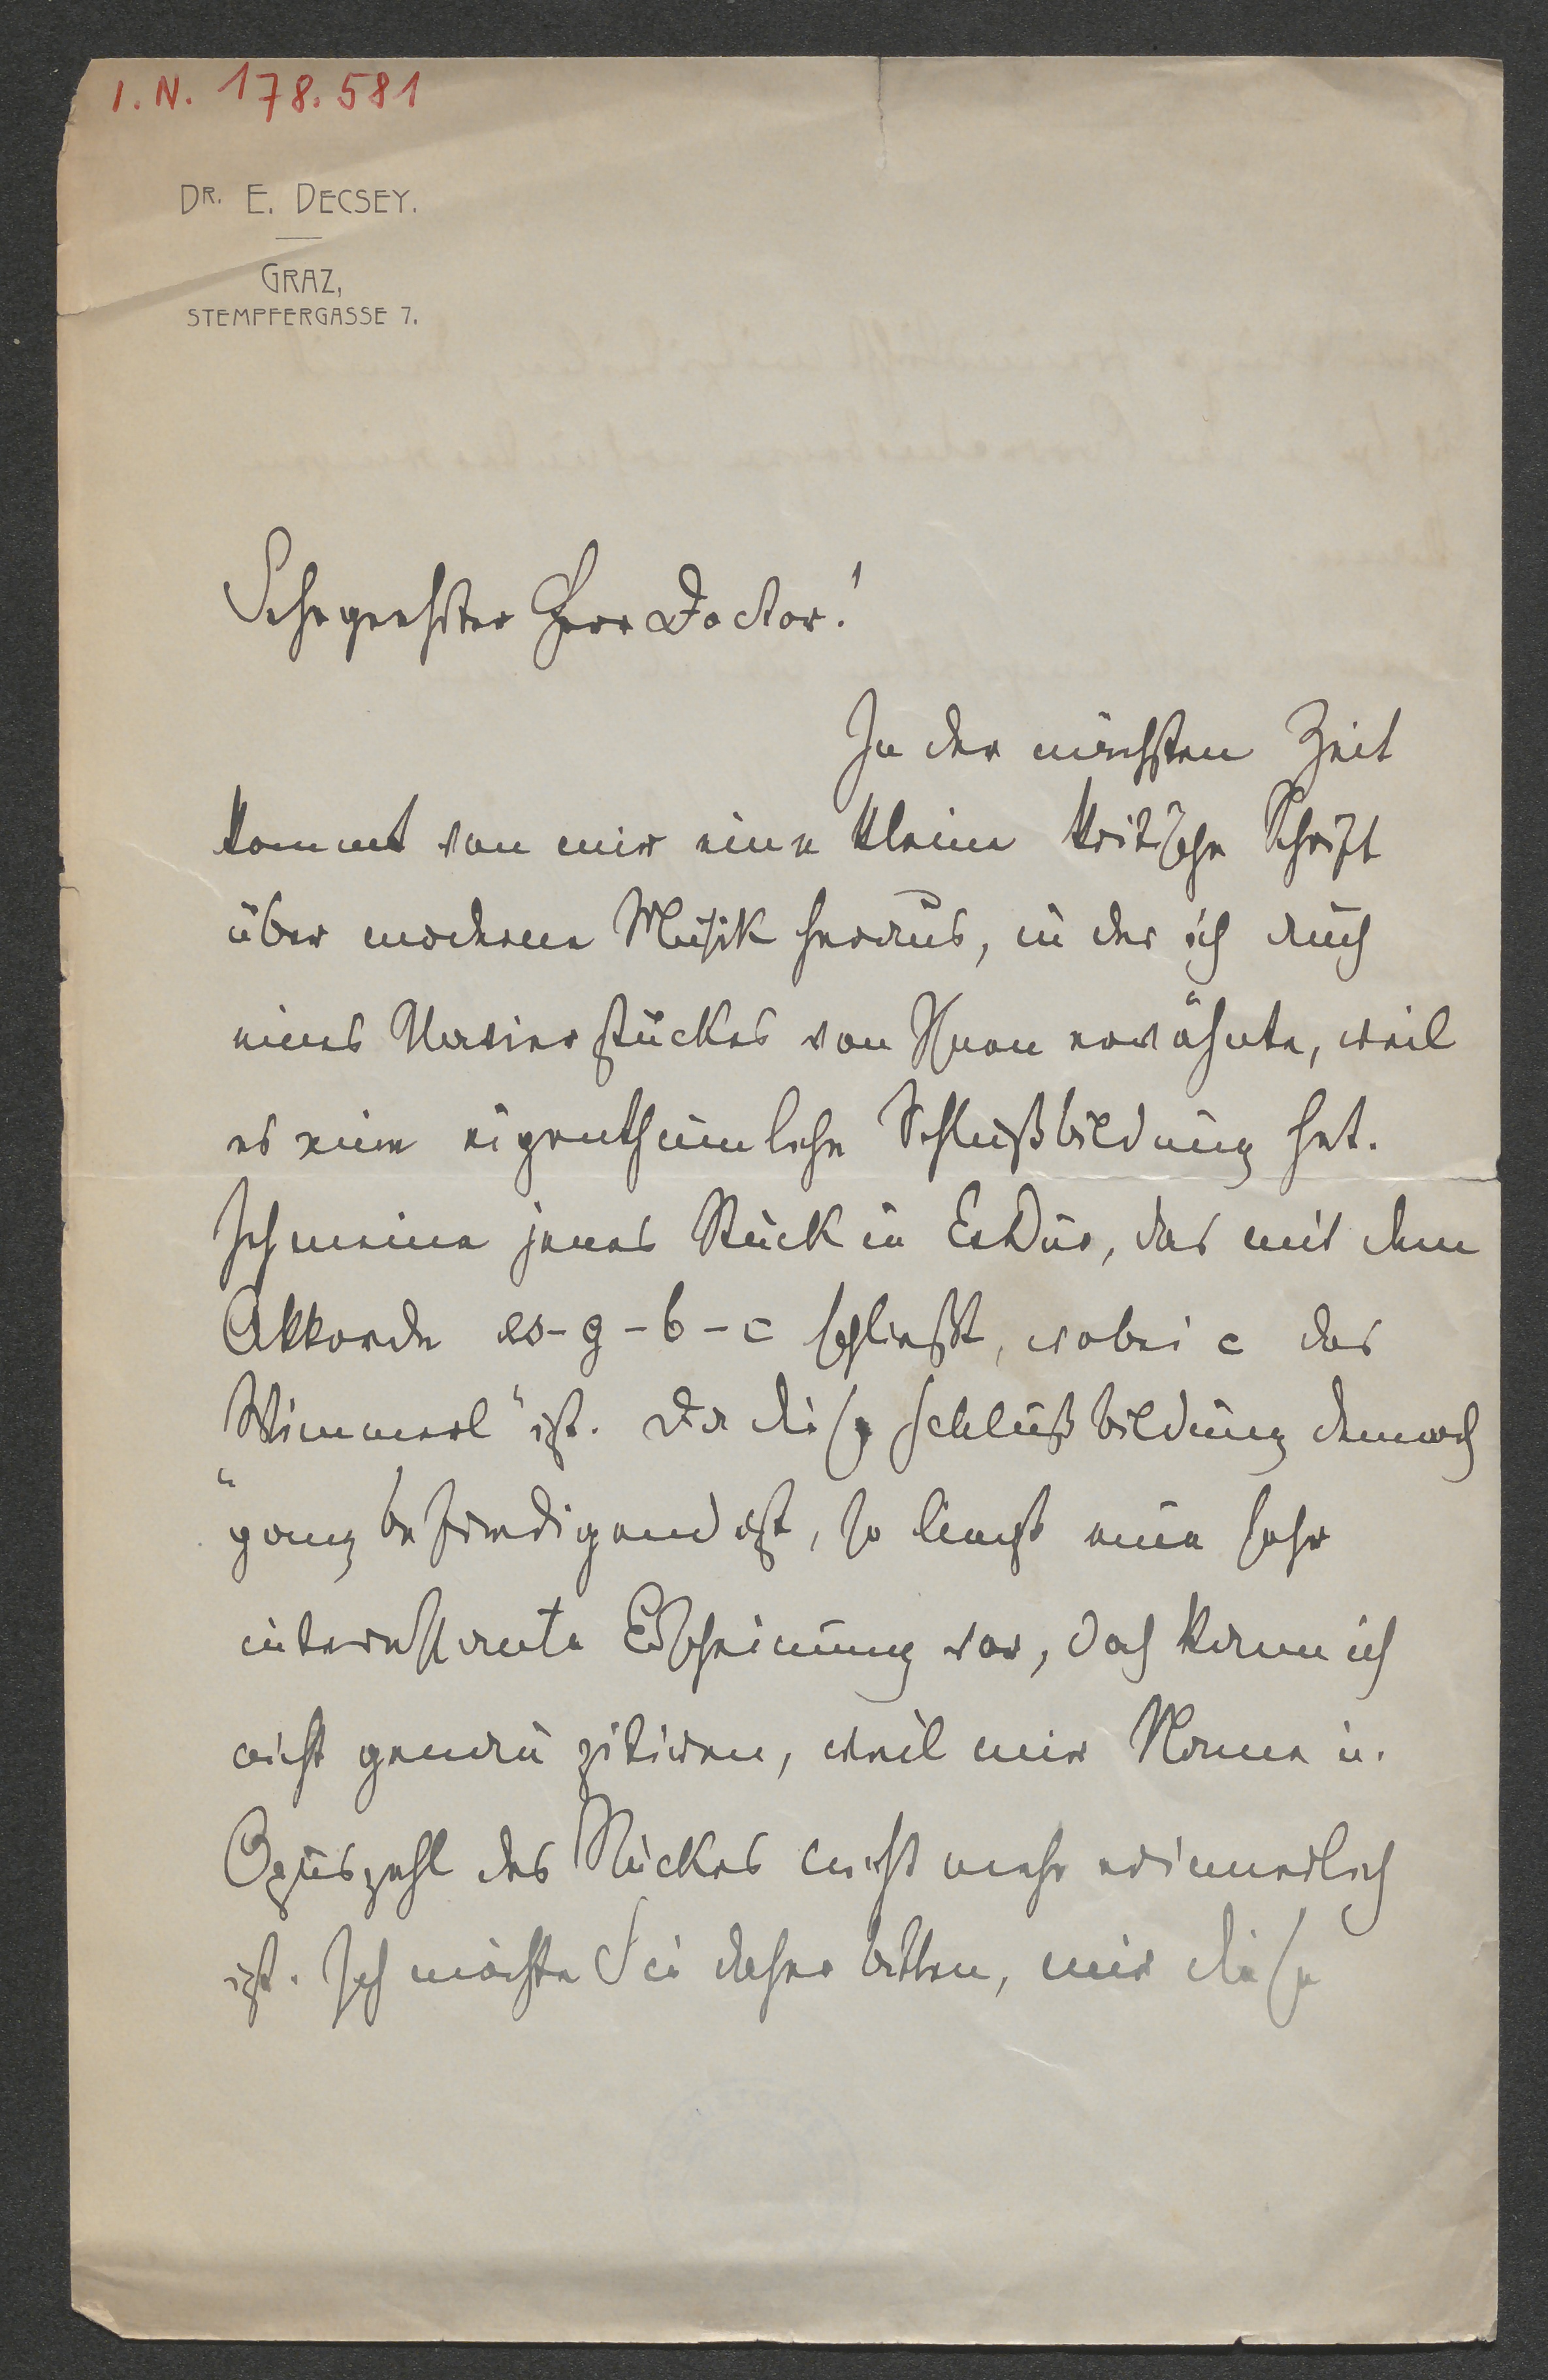 I. N. 178.581
DR. E. DECSEY.
GRAZ,
STEMPFERGASSE 7.
Sehr geehrter Herr Doctor!
In der nächsten Zeit
kommt von mir eine kleine kritische Schrift
über moderne Musik heraus, in der ich auch
eines Klavierstückes von Ihnen erwähnte, weil
es eine eigenthümliche Schlußbildung hat.
Ich meine jenes Stück in EsDur, das mit dem
Akkorde es-g-b-c schließt, wobei c das
„Wimmerl“ ist. Da diese Schlußbildung dennoch
ganz befriedigend ist, so liegt eine sehr
interessante Erscheinung vor, doch kann ich
nicht genau zitiren, weil mir Name u.
Opuszahl des Stückes nicht mehr erinnerlich
ist. Ich möchte Sie daher bitten, mir diese